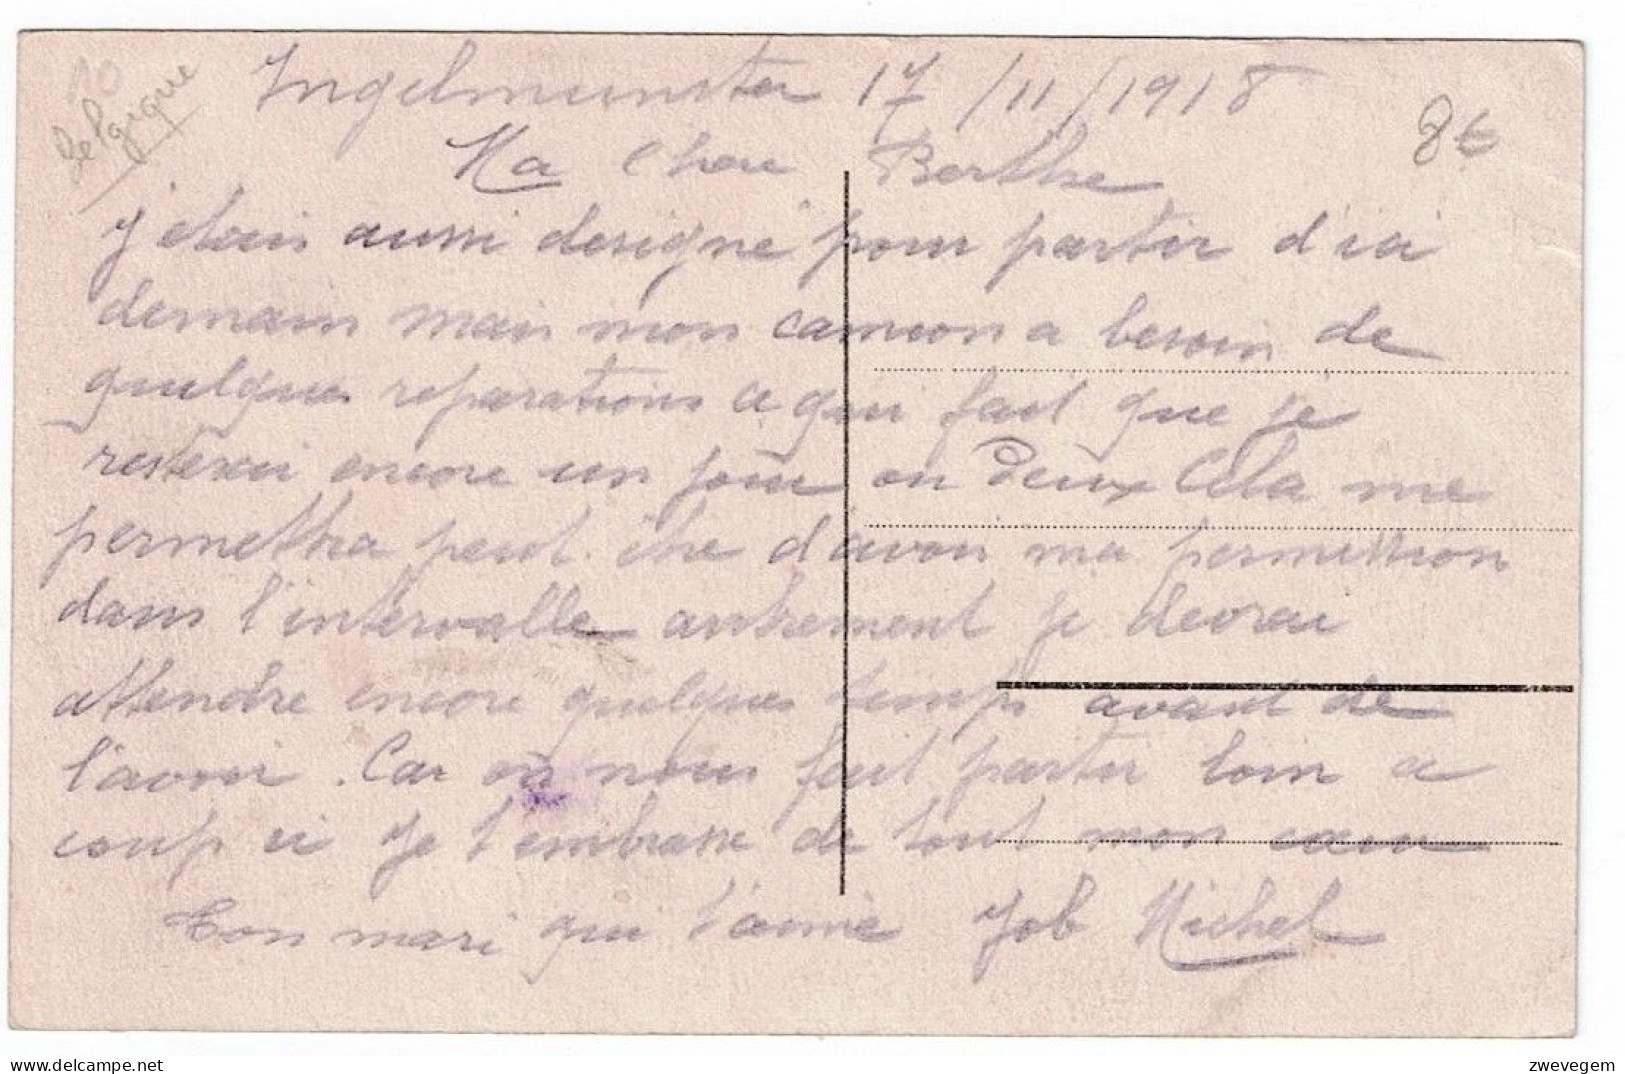 10
Belgique
8€
Ingelmunster 17/11/1918
Ma Chère Berthe
j'etais aussi designé pour partir d'ici
demain mais mon camion a besoin de
quelques reparations ce qui fait que je
resterai encore un jour ou Deux Cela me
permettra peut-être d'avoir ma permission
dans l'intervalle autrement je devrai
attendre encore quelques temps avant de
l'avoir. Car on nous fait partir loin a
coup ci Je t'embrasse de tout mon cœur
Ton mari qui t'aime Job Michel
delcampe.net
zwevegem